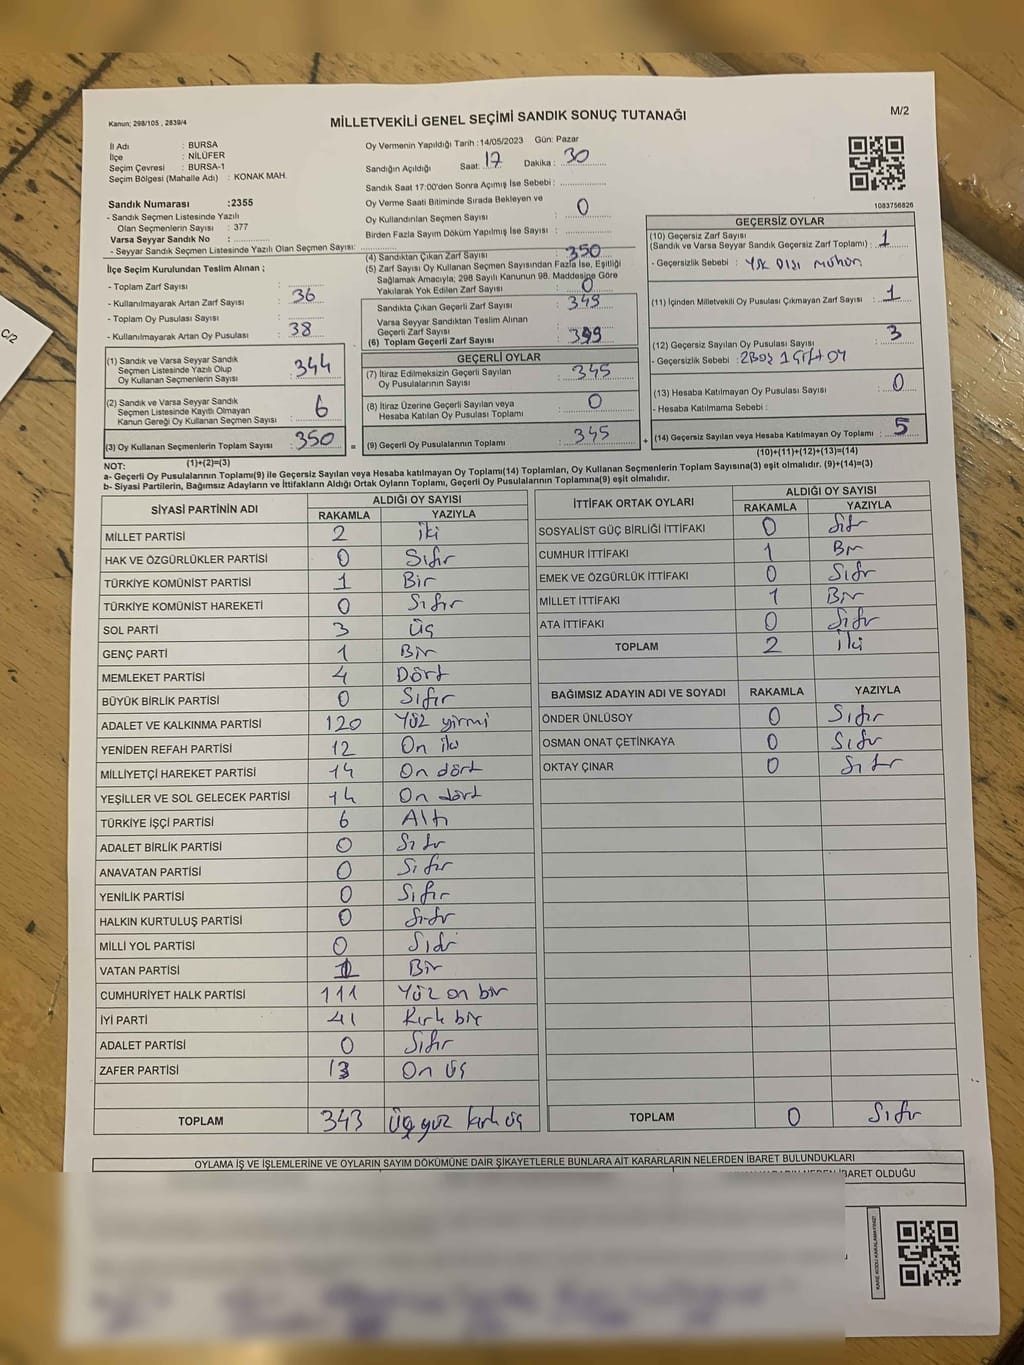 Kanun; 298/105 , 2839/4
MİLLETVEKİLİ GENEL SEÇİMİ SANDIK SONUÇ TUTANAĞI
M/2
İl Adı : BURSA
İlçe : NİLÜFER
Seçim Çevresi : BURSA-1
Seçim Bölgesi (Mahalle Adı) : KONAK MAH.
Sandık Numarası :2355
- Sandık Seçmen Listesinde Yazılı
Olan Seçmenlerin Sayısı : 377
Varsa Seyyar Sandık No :
- Seyyar Sandık Seçmen Listesinde Yazılı Olan Seçmen Sayısı:
Oy Vermenin Yapıldığı Tarih :14/05/2023 Gün: Pazar
Sandığın Açıldığı Saat: 17 Dakika : 30
Sandık Saat 17:00'den Sonra Açımış İse Sebebi :
Oy Verme Saati Bitiminde Sırada Bekleyen ve
Oy Kullandırılan Seçmen Sayısı : 0
Birden Fazla Sayım Döküm Yapılmış İse Sayısı :
1083756826
İlçe Seçim Kurulundan Teslim Alınan ;
- Toplam Zarf Sayısı :
- Kullanılmayarak Artan Zarf Sayısı : 36
- Toplam Oy Pusulası Sayısı :
- Kullanılmayarak Artan Oy Pusulası : 38
(1) Sandık ve Varsa Seyyar Sandık
Seçmen Listesinde Yazılı Olup
Oy Kullanan Seçmenlerin Sayısı : 344
(2) Sandık ve Varsa Seyyar Sandık
Seçmen Listesinde Kayıtlı Olmayan
Kanun Gereği Oy Kullanan Seçmen Sayısı : 6
(3) Oy Kullanan Seçmenlerin Toplam Sayısı : 350 =
(1)+(2)=(3)
(4) Sandıktan Çıkan Zarf Sayısı : 350
(5) Zarf Sayısı Oy Kullanan Seçmen Sayısından Fazla İse, Eşitliği
Sağlamak Amacıyla; 298 Sayılı Kanunun 98. Maddesine Göre
Yakılarak Yok Edilen Zarf Sayısı : 0
Sandıkta Çıkan Geçerli Zarf Sayısı : 349
Varsa Seyyar Sandıktan Teslim Alınan
Geçerli Zarf Sayısı
(6) Toplam Geçerli Zarf Sayısı : 349
GEÇERLİ OYLAR
(7) İtiraz Edilmeksizin Geçerli Sayılan
Oy Pusulalarının Sayısı : 345
(8) İtiraz Üzerine Geçerli Sayılan veya
Hesaba Katılan Oy Pusulası Toplamı : 0
(9) Geçerli Oy Pusulalarının Toplamı : 345 +
GEÇERSİZ OYLAR
(10) Geçersiz Zarf Sayısı
(Sandık ve Varsa Seyyar Sandık Geçersiz Zarf Toplamı) : 1
- Geçersizlik Sebebi : YSK Dışı Mühür
(11) İçinden Milletvekili Oy Pusulası Çıkmayan Zarf Sayısı : 1
(12) Geçersiz Sayılan Oy Pusulası Sayısı : 3
- Geçersizlik Sebebi : 2Boş 1 Çift OY
(13) Hesaba Katılmayan Oy Pusulası Sayısı : 0
- Hesaba Katılmama Sebebi :
(14) Geçersiz Sayılan veya Hesaba Katılmayan Oy Toplamı : 5
(10)+(11)+(12)+(13)=(14)
NOT:
a- Geçerli Oy Pusulalarının Toplamı(9) ile Geçersiz Sayılan veya Hesaba katılmayan Oy Toplamı(14) Toplamları, Oy Kullanan Seçmenlerin Toplam Sayısına(3) eşit olmalıdır. (9)+(14)=(3)
b- Siyasi Partilerin, Bağımsız Adayların ve İttifakların Aldığı Ortak Oyların Toplamı, Geçerli Oy Pusulalarının Toplamına(9) eşit olmalıdır.
SİYASİ PARTİNİN ADI ALDIĞI OY SAYISI
RAKAMLA YAZIYLA
MİLLET PARTİSİ 2 iki
HAK VE ÖZGÜRLÜKLER PARTİSİ 0 Sıfır
TÜRKİYE KOMÜNİST PARTİSİ 1 Bir
TÜRKİYE KOMÜNİST HAREKETİ 0 Sıfır
SOL PARTİ 3 Üç
GENÇ PARTİ 1 Bir
MEMLEKET PARTİSİ 4 Dört
BÜYÜK BİRLİK PARTİSİ 0 Sıfır
ADALET VE KALKINMA PARTİSİ 120 Yüz yirmi
YENİDEN REFAH PARTİSİ 12 On iki
MİLLİYETÇİ HAREKET PARTİSİ 14 On dört
YEŞİLLER VE SOL GELECEK PARTİSİ 14 On dört
TÜRKİYE İŞÇİ PARTİSİ 6 Altı
ADALET BİRLİK PARTİSİ 0 Sıfır
ANAVATAN PARTİSİ 0 Sıfır
YENİLİK PARTİSİ 0 Sıfır
HALKIN KURTULUŞ PARTİSİ 0 Sıfır
MİLLİ YOL PARTİSİ 0 Sıfır
VATAN PARTİSİ 1 Bir
CUMHURİYET HALK PARTİSİ 111 Yüz on bir
İYİ PARTİ 41 Kırk bir
ADALET PARTİSİ 0 Sıfır
ZAFER PARTİSİ 13 On üç
TOPLAM 343 Üç yüz kırk üç
İTTİFAK ORTAK OYLARI ALDIĞI OY SAYISI
RAKAMLA YAZIYLA
SOSYALİST GÜÇ BİRLİĞİ İTTİFAKI 0 Sıfır
CUMHUR İTTİFAKI 1 Bir
EMEK VE ÖZGÜRLÜK İTTİFAKI 0 Sıfır
MİLLET İTTİFAKI 1 Bir
ATA İTTİFAKI 0 Sıfır
TOPLAM 2 iki
BAĞIMSIZ ADAYIN ADI VE SOYADI RAKAMLA YAZIYLA
ÖNDER ÜNLÜSOY 0 Sıfır
OSMAN ONAT ÇETİNKAYA 0 Sıfır
OKTAY ÇINAR 0 Sıfır
TOPLAM 0 Sıfır
OYLAMA İŞ VE İŞLEMLERİNE VE OYLARIN SAYIM DÖKÜMÜNE DAİR ŞİKAYETLERLE BUNLARA AİT KARARLARIN NELERDEN İBARET BULUNDUKLARI
İBARET OLDUĞU
KARE KODU KARALAMAYINIZ!
C/2